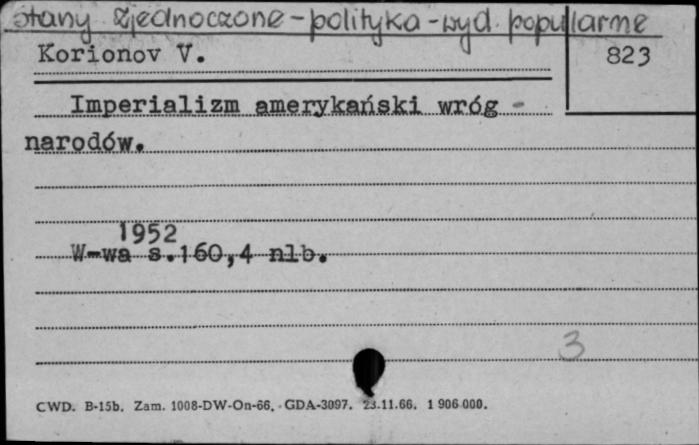 Stany Zjednoczone - polityka - wyd. popularne
Korionov V.
823
Imperializm amerykański wróg -
narodów.
1952
W-wa s.160,4 nlb.
3
CWD. B-15b. Zam. 1008-DW-On-66. GDA-3097. 23.11.66. 1 906 000.